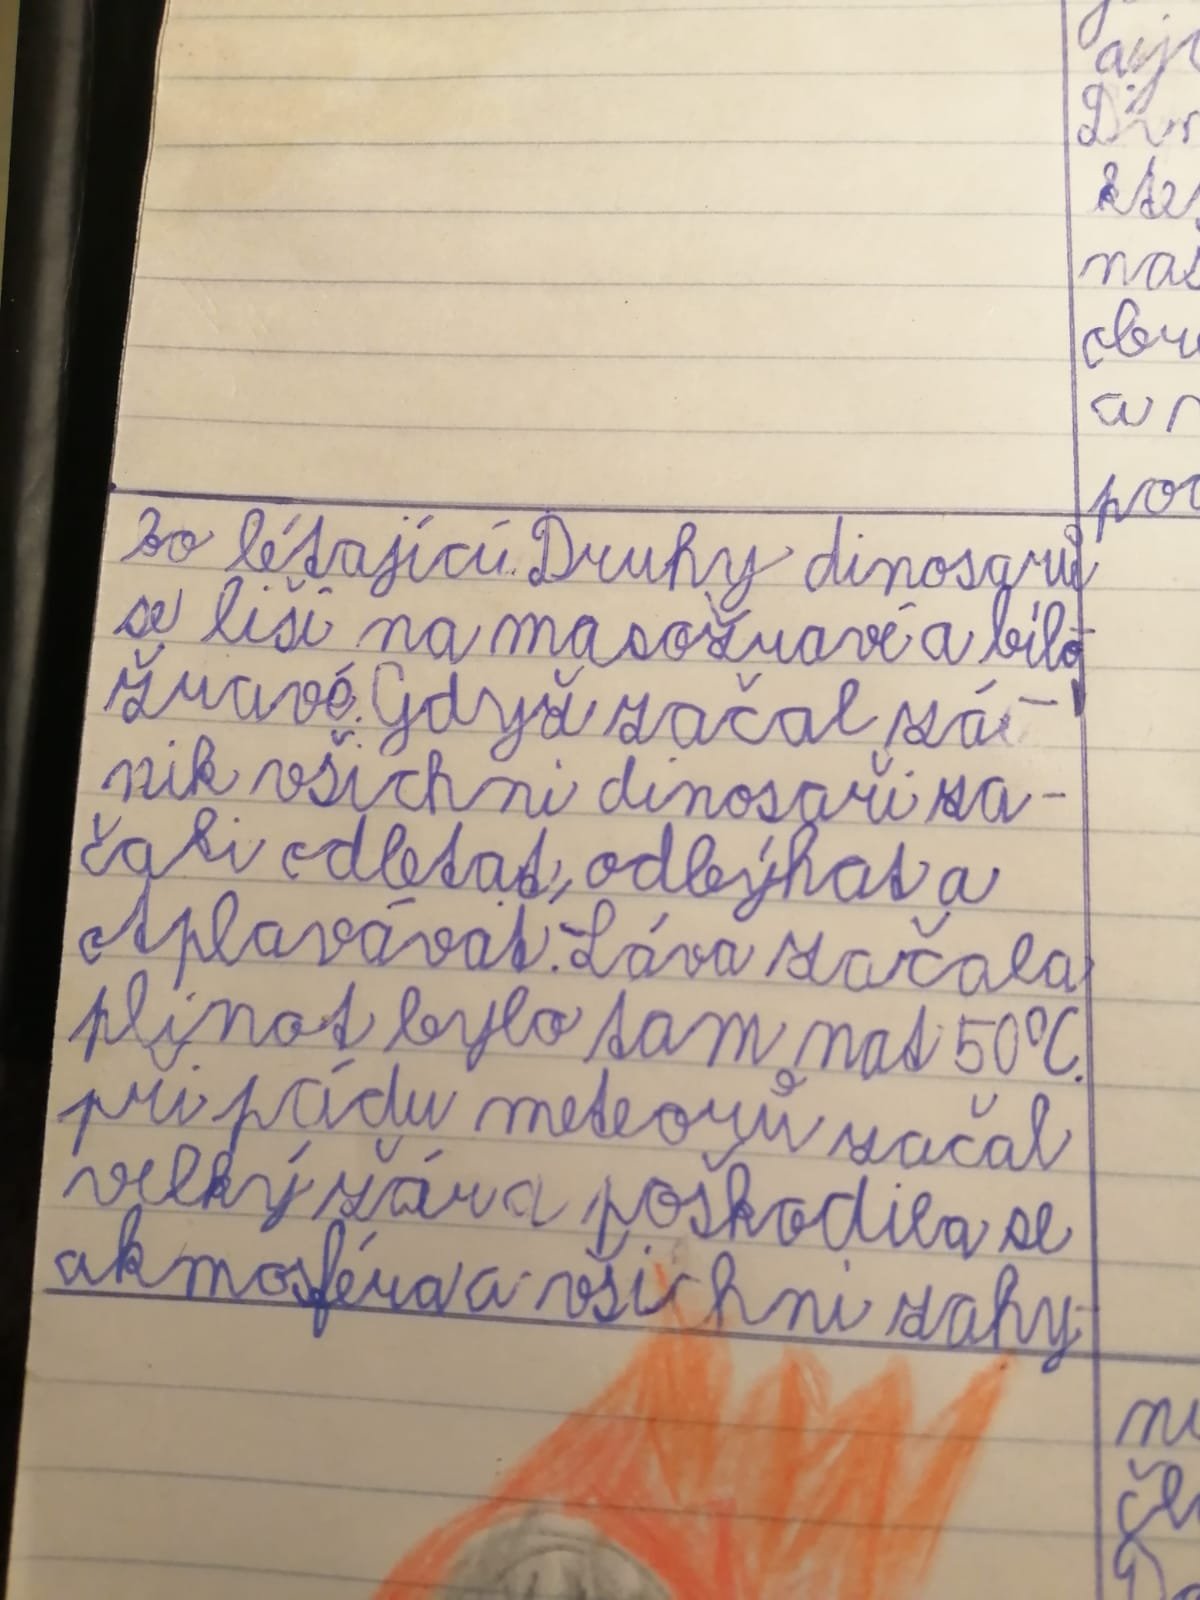 bo létající. Druhy dinosarů
se liší na masožravé a bílo-
žravé. Gdyž začal zá-
nik všichni dinosaři za-
čali odletat, odbýhat a
otplavávat. Láva začala
plinot bylo tam nat 50°C.
pri pádu meteorů začal
velký žára poškodila se
akmosféra a všichni zahy-